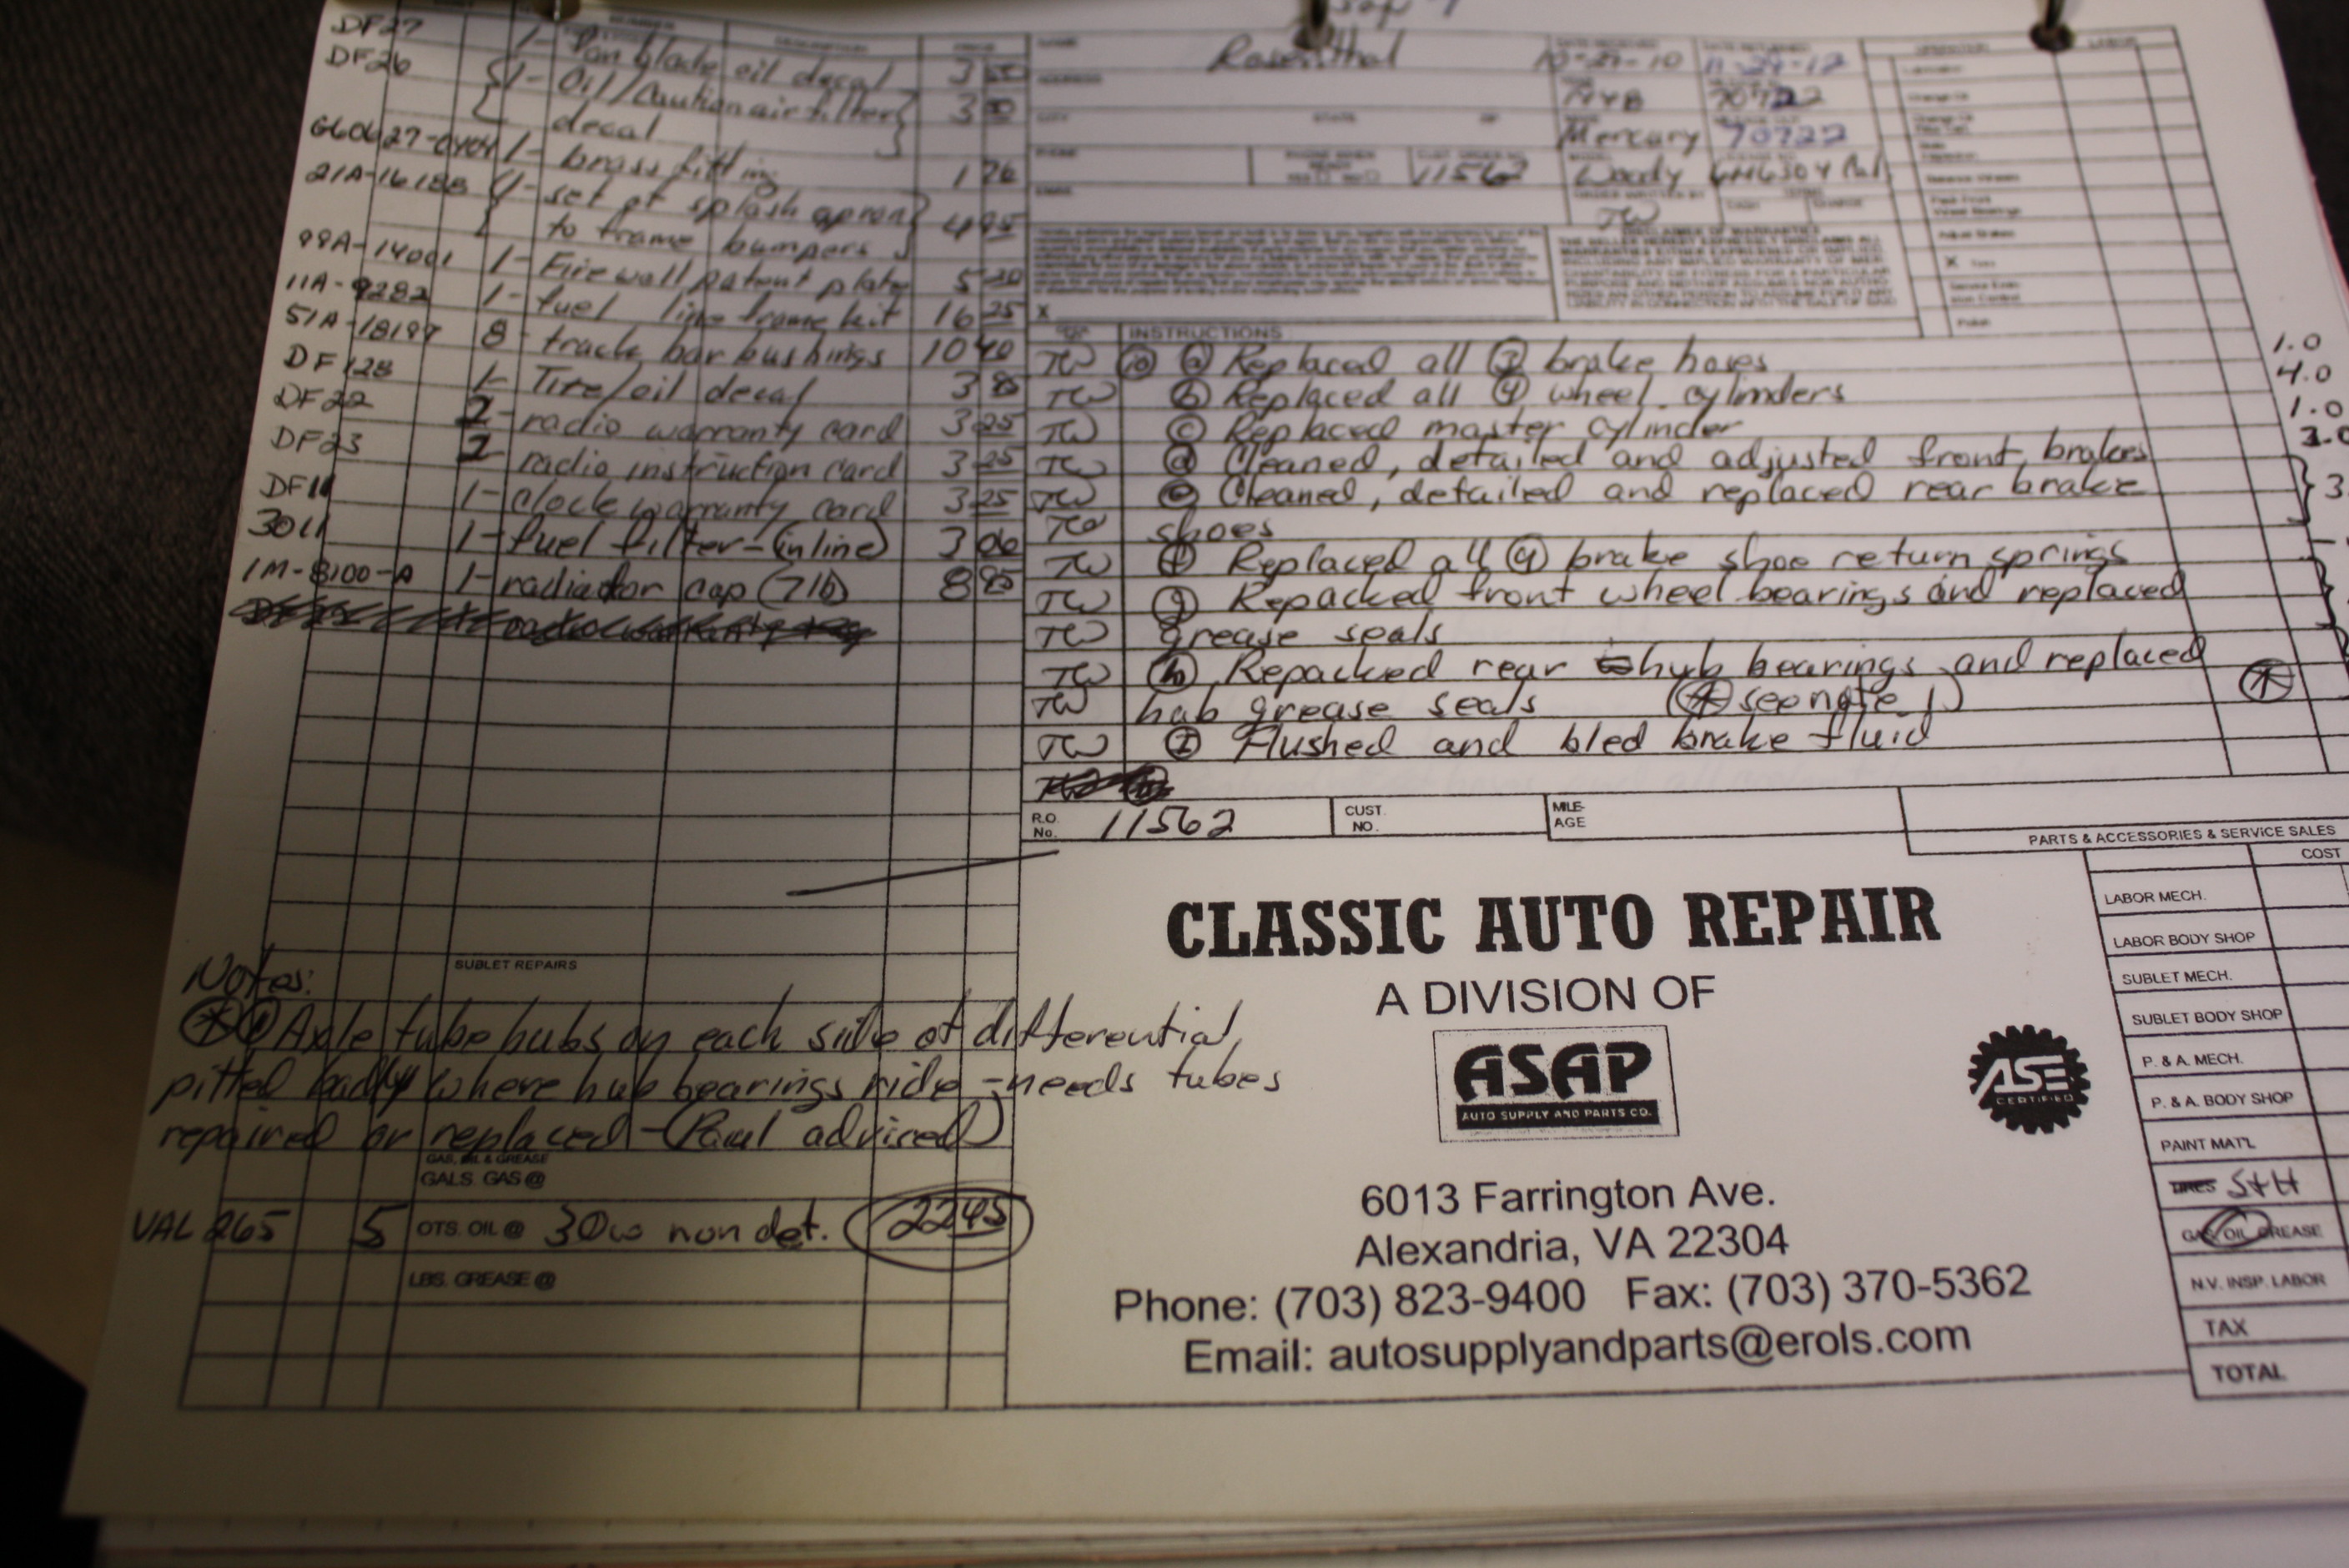 DF27 1- Fan blade oil decal 3 50
DF26 1- Oil/Caution air filter 3 50
decal
1- brass fitting 1 26
21A-16188 1- set of splash apron 4 95
to frame bumpers
99A-14001 1- Firewall patent plate 5 20
11A-9282 1- fuel line frame kit 16 25
51A-18197 8- track bar bushings 10 40
DF128 1- Tire/oil decal
DF22 radio warranty card 3 25
DF23 radio instruction card 3 25
DF11 1- clock warranty card 3 25
3011 1- fuel filter-(inline) 3 06
1M-8100-A 1- radiator cap (7lb) 8 85
Rosenthal
Mercury 70722
11562 Woody
TW
X
INSTRUCTIONS
TW 10 a Replaced all 3 brake hoses 1.0
TW b Replaced all 4 wheel cylinders 4.0
TW c Replaced master cylinder 1.0
TW d Cleaned, detailed and adjusted front brakes
TW e Cleaned, detailed and replaced rear brake 3
TW shoes
TW f Replaced all 4 brake shoe return springs
TW g Repacked front wheel bearings and replaced
TW grease seals
TW h Repacked rear hub bearings and replaced
TW hub grease seals (* see note 1)
TW I Flushed and bled brake fluid
R.O. No. 11562 CUST. NO. MILE-AGE
PARTS & ACCESSORIES & SERVICE SALES
COST
LABOR MECH.
LABOR BODY SHOP
SUBLET MECH.
SUBLET BODY SHOP
P. & A. MECH.
P. & A. BODY SHOP
PAINT MAT'L
S+H
GAS OIL GREASE
N.V. INSP. LABOR
TAX
TOTAL
CLASSIC AUTO REPAIR
A DIVISION OF
ASAP
AUTO SUPPLY AND PARTS CO.
ASE
CERTIFIED
6013 Farrington Ave.
Alexandria, VA 22304
Phone: (703) 823-9400 Fax: (703) 370-5362
Email: autosupplyandparts@erols.com
SUBLET REPAIRS
Notes:
* 1 Axle tube hubs on each side of differential
pitted badly where hub bearings ride - needs tubes
repaired or replaced - (Paul advised)
GAS, OIL & GREASE
GALS. GAS @
VAL 265 5 QTS. OIL @ 30w non det. 22 45
LBS. GREASE @